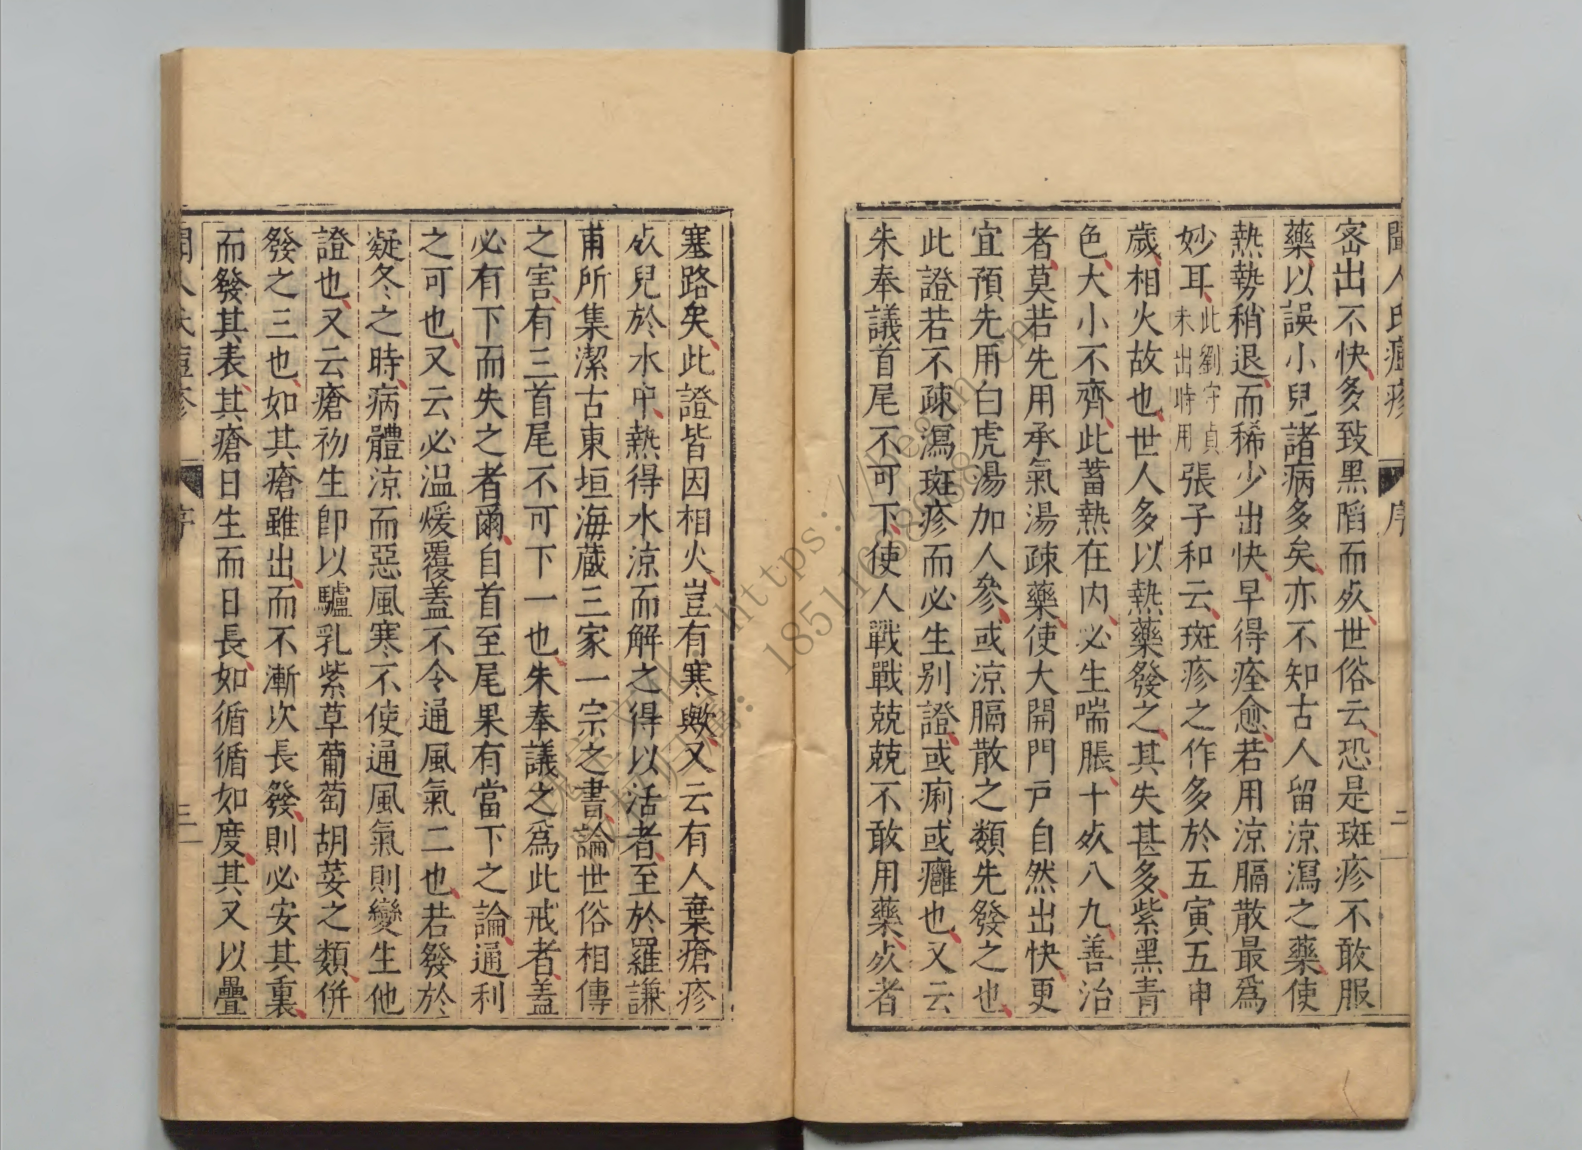 聞人氏痘疹 序 二
密出不快多致黑陷而死世俗云恐是斑疹不敢服
藥以誤小兒諸病多矣亦不知古人留涼瀉之藥使
熱勢稍退而稀少出快早得痊愈若用涼膈散最爲
妙耳此劉守貞未出時用張子和云斑疹之作多於五寅五申
歲相火故也世人多以熱藥發之其失甚多紫黑青
色大小不齊此蓄熱在内必生喘脹十死八九善治
者莫若先用承氣湯疎藥使大開門戸自然出快更
宜預先用白虎湯加人參或涼膈散之類先發之也
此證若不疎瀉斑疹而必生别證或痢或癰也又云
朱奉議首尾不可下使人戰戰兢兢不敢用藥死者
塞路矣此證皆因相火豈有寒歟又云有人棄瘡疹
死兒於水中熱得水涼而解之得以活者至於羅謙
甫所集潔古東垣海蔵三家一宗之書論世俗相傳
之害有三首尾不可下一也朱奉議之爲此戒者蓋
必有下而失之者爾自首至尾果有當下之論通利
之可也又云必温煖覆蓋不令通風氣二也若發於
凝冬之時病體涼而惡風寒不使通風氣則變生他
證也又云瘡初生卽以驢乳紫草葡萄胡荽之類併
發之三也如其瘡雖出而不漸次長發則必安其裏
而發其表其瘡日生而日長如循循如度其又以疊
聞人氏痘疹 序 三